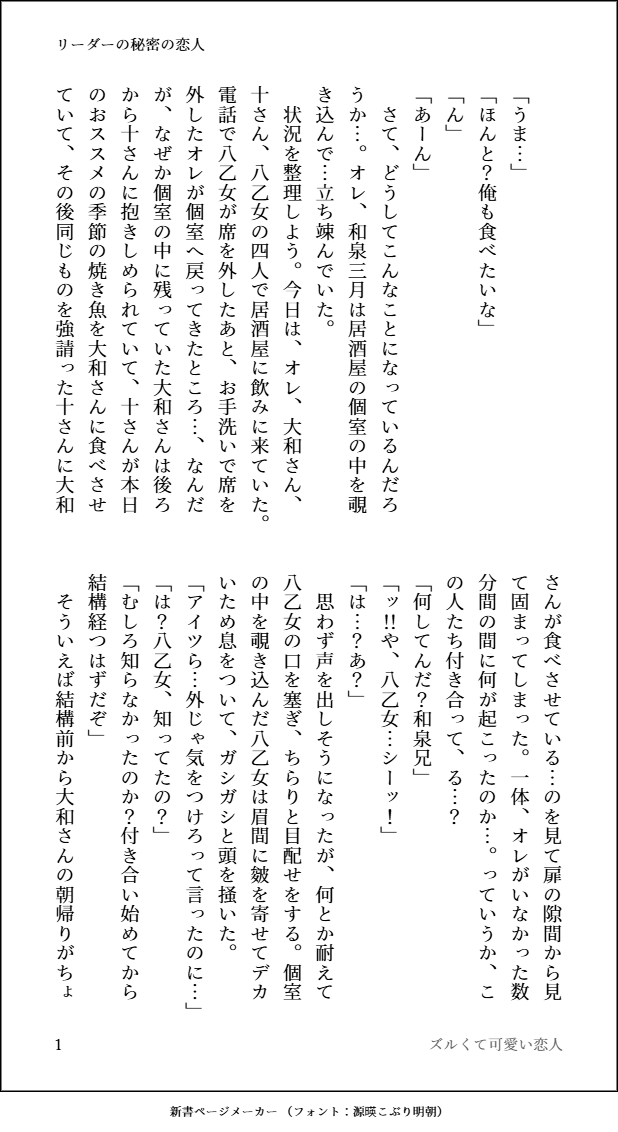 リーダーの秘密の恋人
「うま…」
「ほんと?俺も食べたいな」
「ん」
「あーん」
　さて、どうしてこんなことになっているんだろ
うか…。オレ、和泉三月は居酒屋の個室の中を覗
き込んで…立ち竦んでいた。
　状況を整理しよう。今日は、オレ、大和さん、
十さん、八乙女の四人で居酒屋に飲みに来ていた。
電話で八乙女が席を外したあと、お手洗いで席を
外したオレが個室へ戻ってきたところ…、なんだ
が、なぜか個室の中に残っていた大和さんは後ろ
から十さんに抱きしめられていて、十さんが本日
のおススメの季節の焼き魚を大和さんに食べさせ
ていて、その後同じものを強請った十さんに大和
さんが食べさせている…のを見て扉の隙間から見
て固まってしまった。一体、オレがいなかった数
分間の間に何が起こったのか…。っていうか、こ
の人たち付き合って、る…?
「何してんだ?和泉兄」
「ッ!!や、八乙女…シーッ!」
「は…?あ?」
　思わず声を出しそうになったが、何とか耐えて
八乙女の口を塞ぎ、ちらりと目配せをする。個室
の中を覗き込んだ八乙女は眉間に皺を寄せてデカ
いため息をついて、ガシガシと頭を掻いた。
「アイツら…外じゃ気をつけろって言ったのに…」
「は?八乙女、知ってたの?」
「むしろ知らなかったのか?付き合い始めてから
結構経つはずだぞ」
　そういえば結構前から大和さんの朝帰りがちょ
1
ズルくて可愛い恋人
新書ページメーカー（フォント：源暎こぶり明朝）